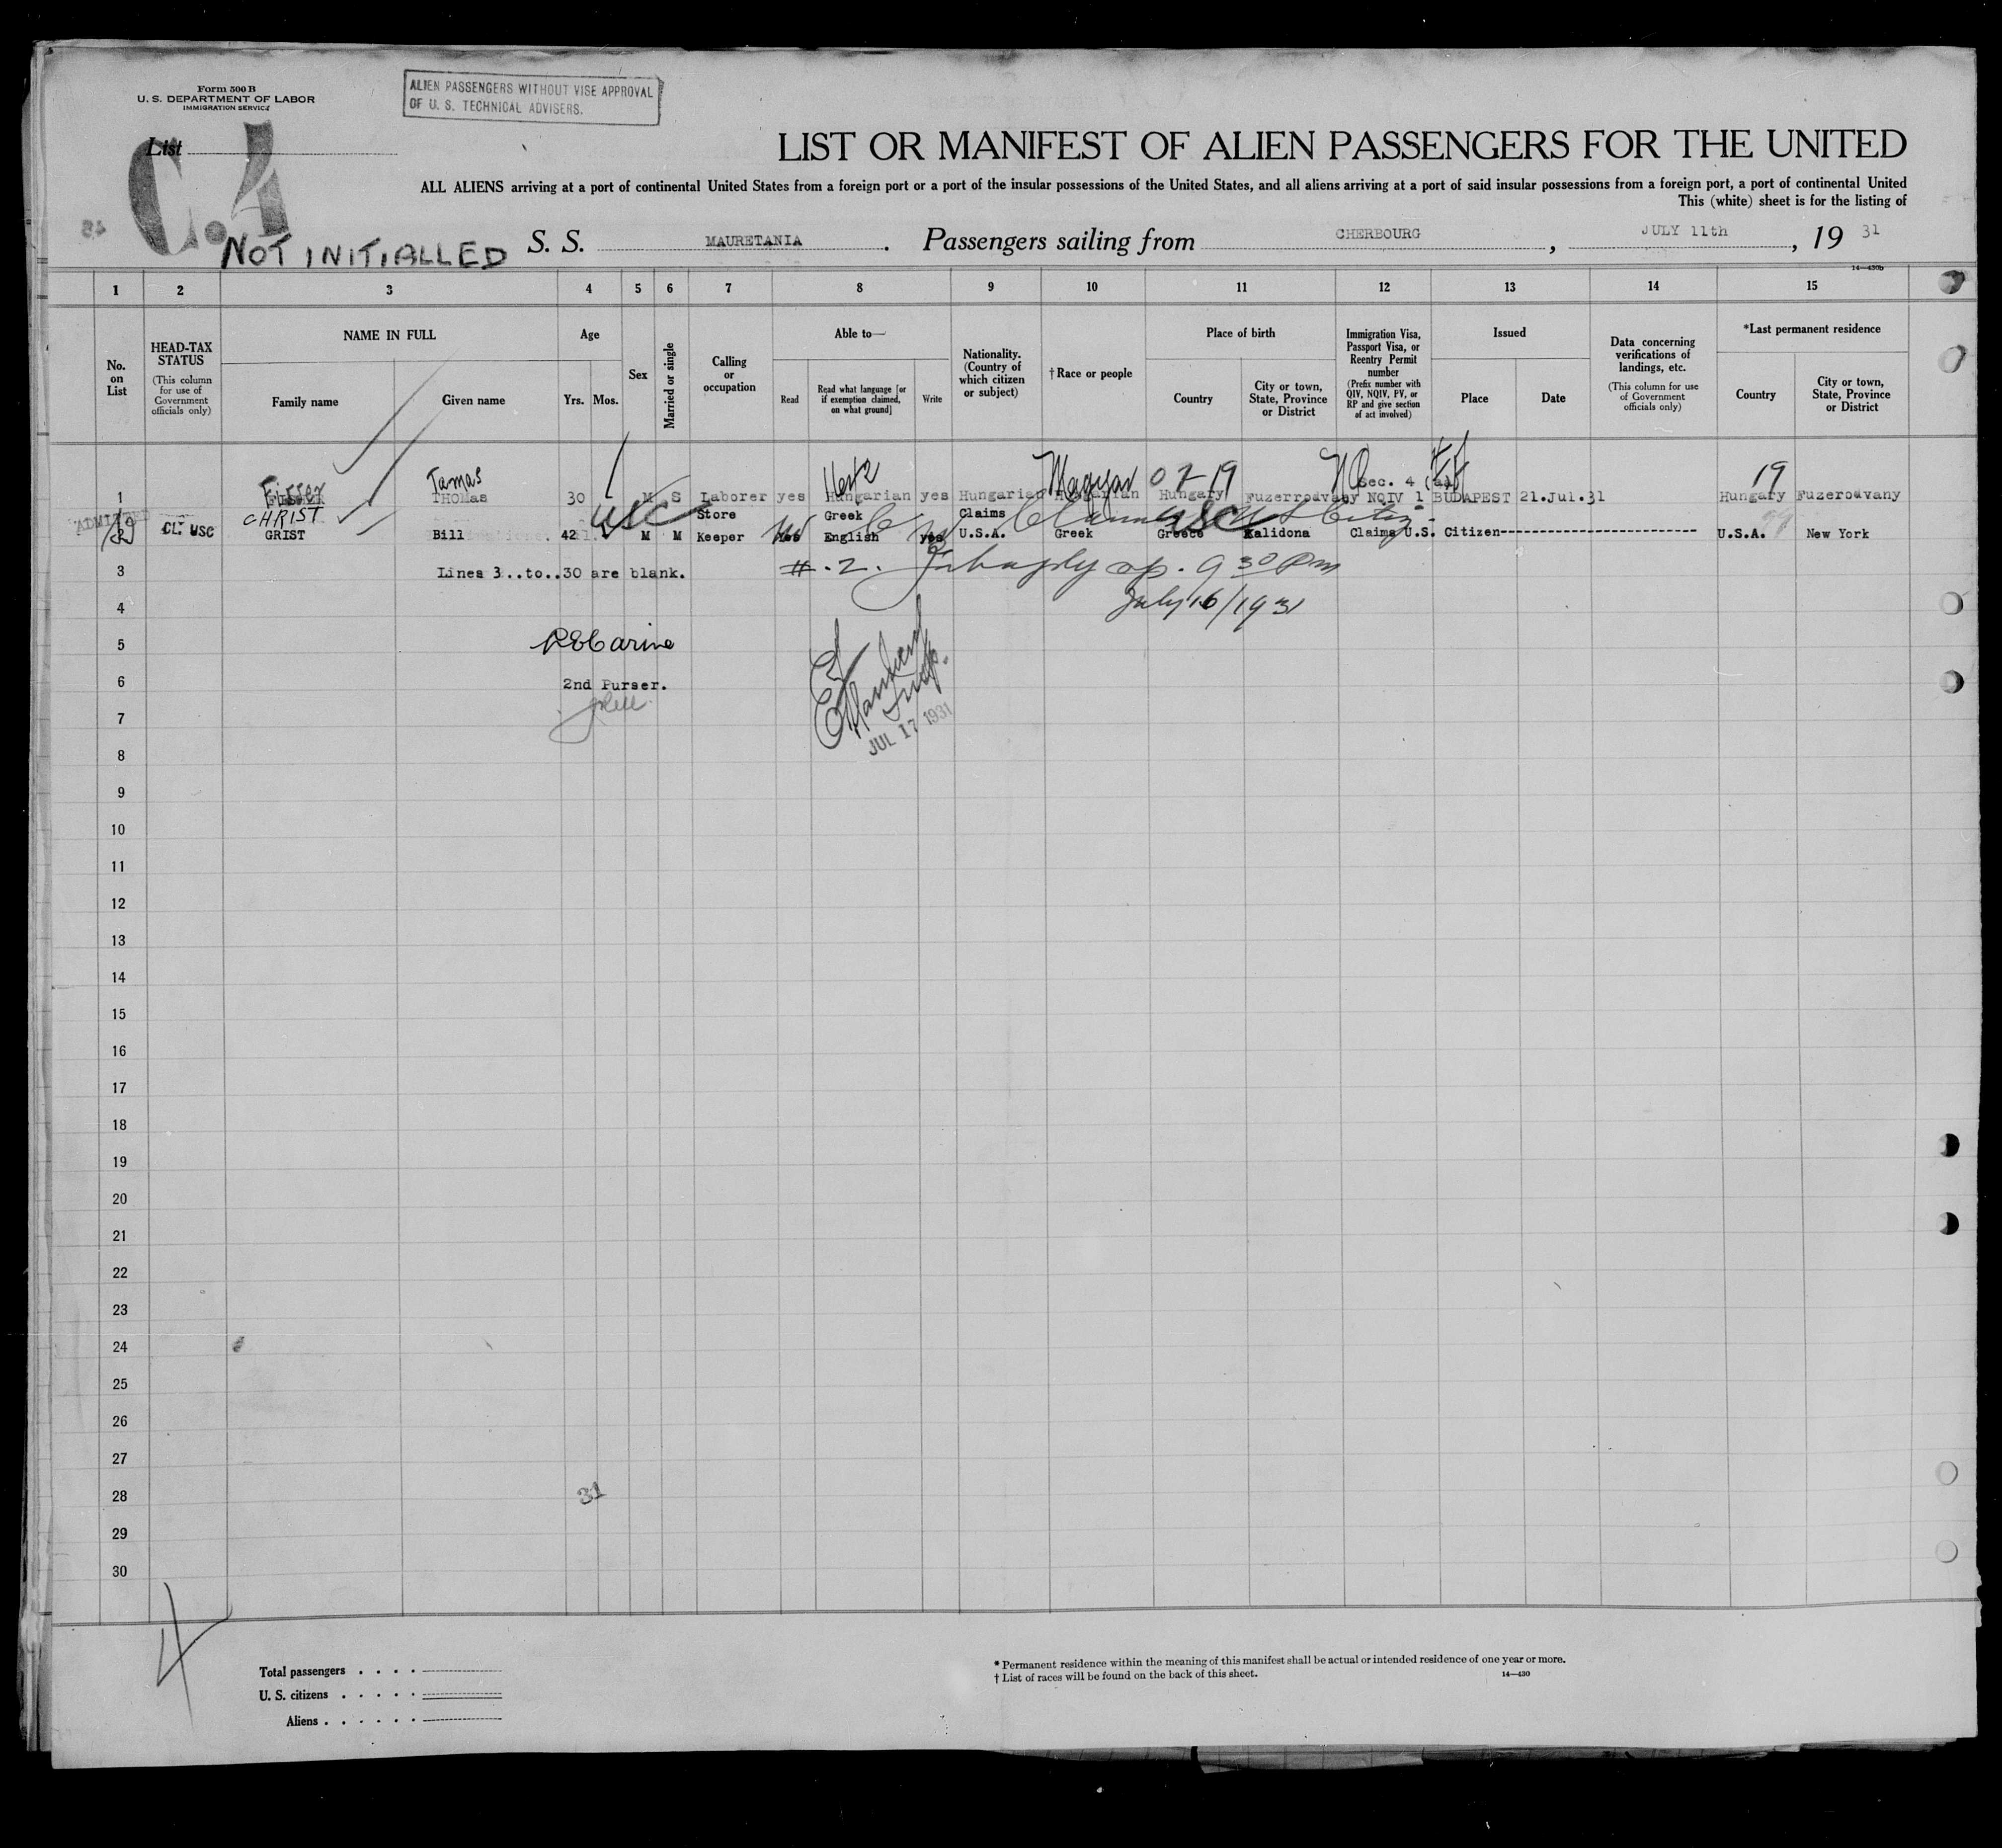 Form 500 B
U. S. DEPARTMENT OF LABOR
IMMIGRATION SERVICE
ALIEN PASSENGERS WITHOUT VISE APPROVAL
OF U. S. TECHNICAL ADVISERS.
List
C.4
LIST OR MANIFEST OF ALIEN PASSENGERS FOR THE UNITED
ALL ALIENS arriving at a port of continental United States from a foreign port or a port of the insular possessions of the United States, and all aliens arriving at a port of said insular possessions from a foreign port, a port of continental United
This (white) sheet is for the listing of
NOT INITIALLED
S. S. MAURETANIA. Passengers sailing from CHERBOURG, JULY 11th, 19 31
14—430b
1 2 3 4 5 6 7 8 9 10 11 12 13 14 15
No. on List
HEAD-TAX STATUS
(This column for use of Government officials only)
NAME IN FULL
Family name
Given name
Age
Yrs. Mos.
Sex
Married or single
Calling or occupation
Able to—
Read
Read what language [or if exemption claimed, on what ground]
Write
Nationality. (Country of which citizen or subject)
†Race or people
Place of birth
Country
City or town, State, Province or District
Immigration Visa, Passport Visa, or Reentry Permit number
(Prefix number with QIV, NQIV, PV, or RP and give section of act involved)
Issued
Place
Date
Data concerning verifications of landings, etc.
(This column for use of Government officials only)
*Last permanent residence
Country
City or town, State, Province or District
Tamas Magyar Sec. 4 19
1 THOMas 30 M S Laborer yes Hungarian yes Hungarian Hungary Fuzerrodvany NQIV 1 BUDAPEST 21.Jul.31 Hungary Fuzerodvany
ADMITTED
CHRIST USC Store Greek Claims USC
CL. USC GRIST Bill 42 M M Keeper yes English yes U.S.A. Greek Greece Kalidona Claims U.S. Citizen U.S.A. New York
3 Lines 3..to..30 are blank.
#.2. op. 9 30 Pm
4 July 16/1931
5
6 2nd Purser.
7
JUL 17 1931
8
9
10
11
12
13
14
15
16
17
18
19
20
21
22
23
24
25
26
27
28 31
29
30
4
Total passengers
U. S. citizens
Aliens
* Permanent residence within the meaning of this manifest shall be actual or intended residence of one year or more.
† List of races will be found on the back of this sheet.
14—430